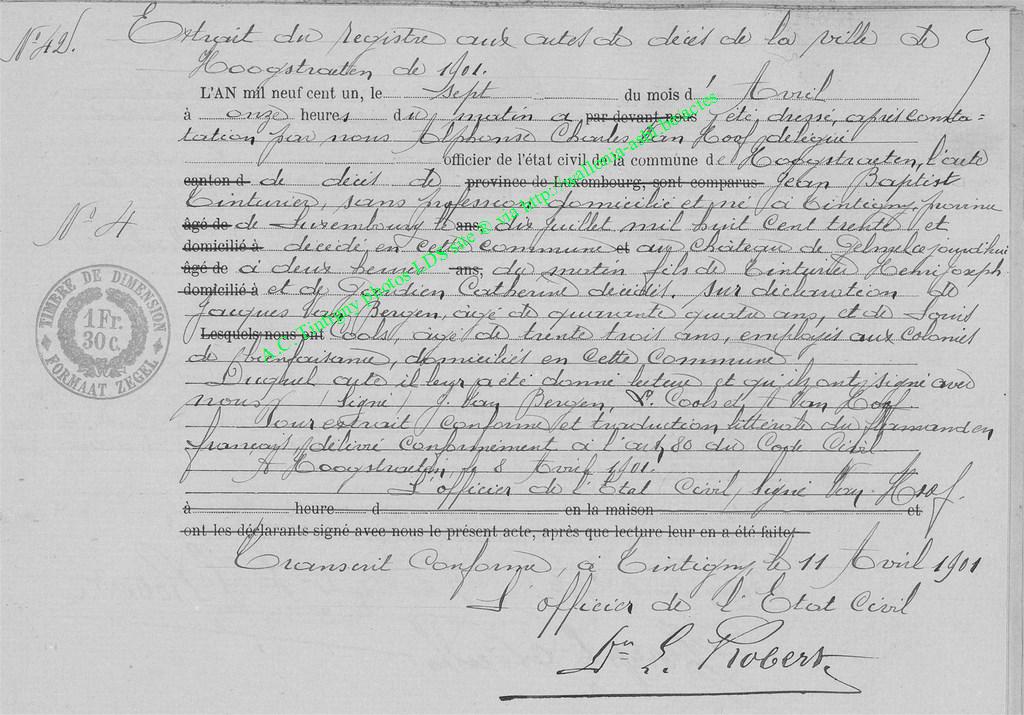 N° 42.
Extrait du registre aux actes de décès de la ville de
Hoogstraeten de 1901.
L'AN mil neuf cent un, le sept du mois d' Avril
à onze heures du matin a par devant nous été dressé, après consta-
tation par nous Alphonse Charles Van Hoof délégué
officier de l'état civil de la commune de Hoogstraeten, l'acte
canton d de décès de province de Luxembourg, sont comparus Jean Baptist
Tinturier, sans profession domicilié et né à Tintigny, province
N° 4
âgé de de Luxembourg le ans, dix juillet mil huit cent trente et
domicilié à décédé en cette commune et au château de Gelmel ce jourd'hui
âgé de à deux heures ans, du matin fils de Tinturier Henri Joseph
domicilié à et de Catherine décédés. Sur déclaration de
Jacques Van Bergen, âgé de quarante quatre ans, et de Louis
Lesquels nous ont Cools, âgé de trente trois ans, employés aux colonies
de bienfaisance, domiciliés en cette Commune
Duquel acte il leur a été donné lecture et qu'ils ont signé avec
nous (signé) J. Van Bergen, L. Cools et A Van Hoof
Pour extrait conforme et traduction littérale du flamand en
français, délivré conformément à l'art. 80 du Code Civil
A Hoogstraeten, le 8 Avril 1901.
L'officier de l'Etat Civil, signé Van Hoof.
à heure d en la maison et
ont les déclarants signé avec nous le présent acte, après que lecture leur en a été faite.
Transcrit conforme, à Tintigny le 11 Avril 1901
L'officier de l'Etat Civil
Dr E. Robert
TIMBRE DE DIMENSION
1 Fr.
30 c.
FORMAAT ZEGEL
A.C. Tintigny photos LDS site ® via http://wallonia-asbl.be/actes